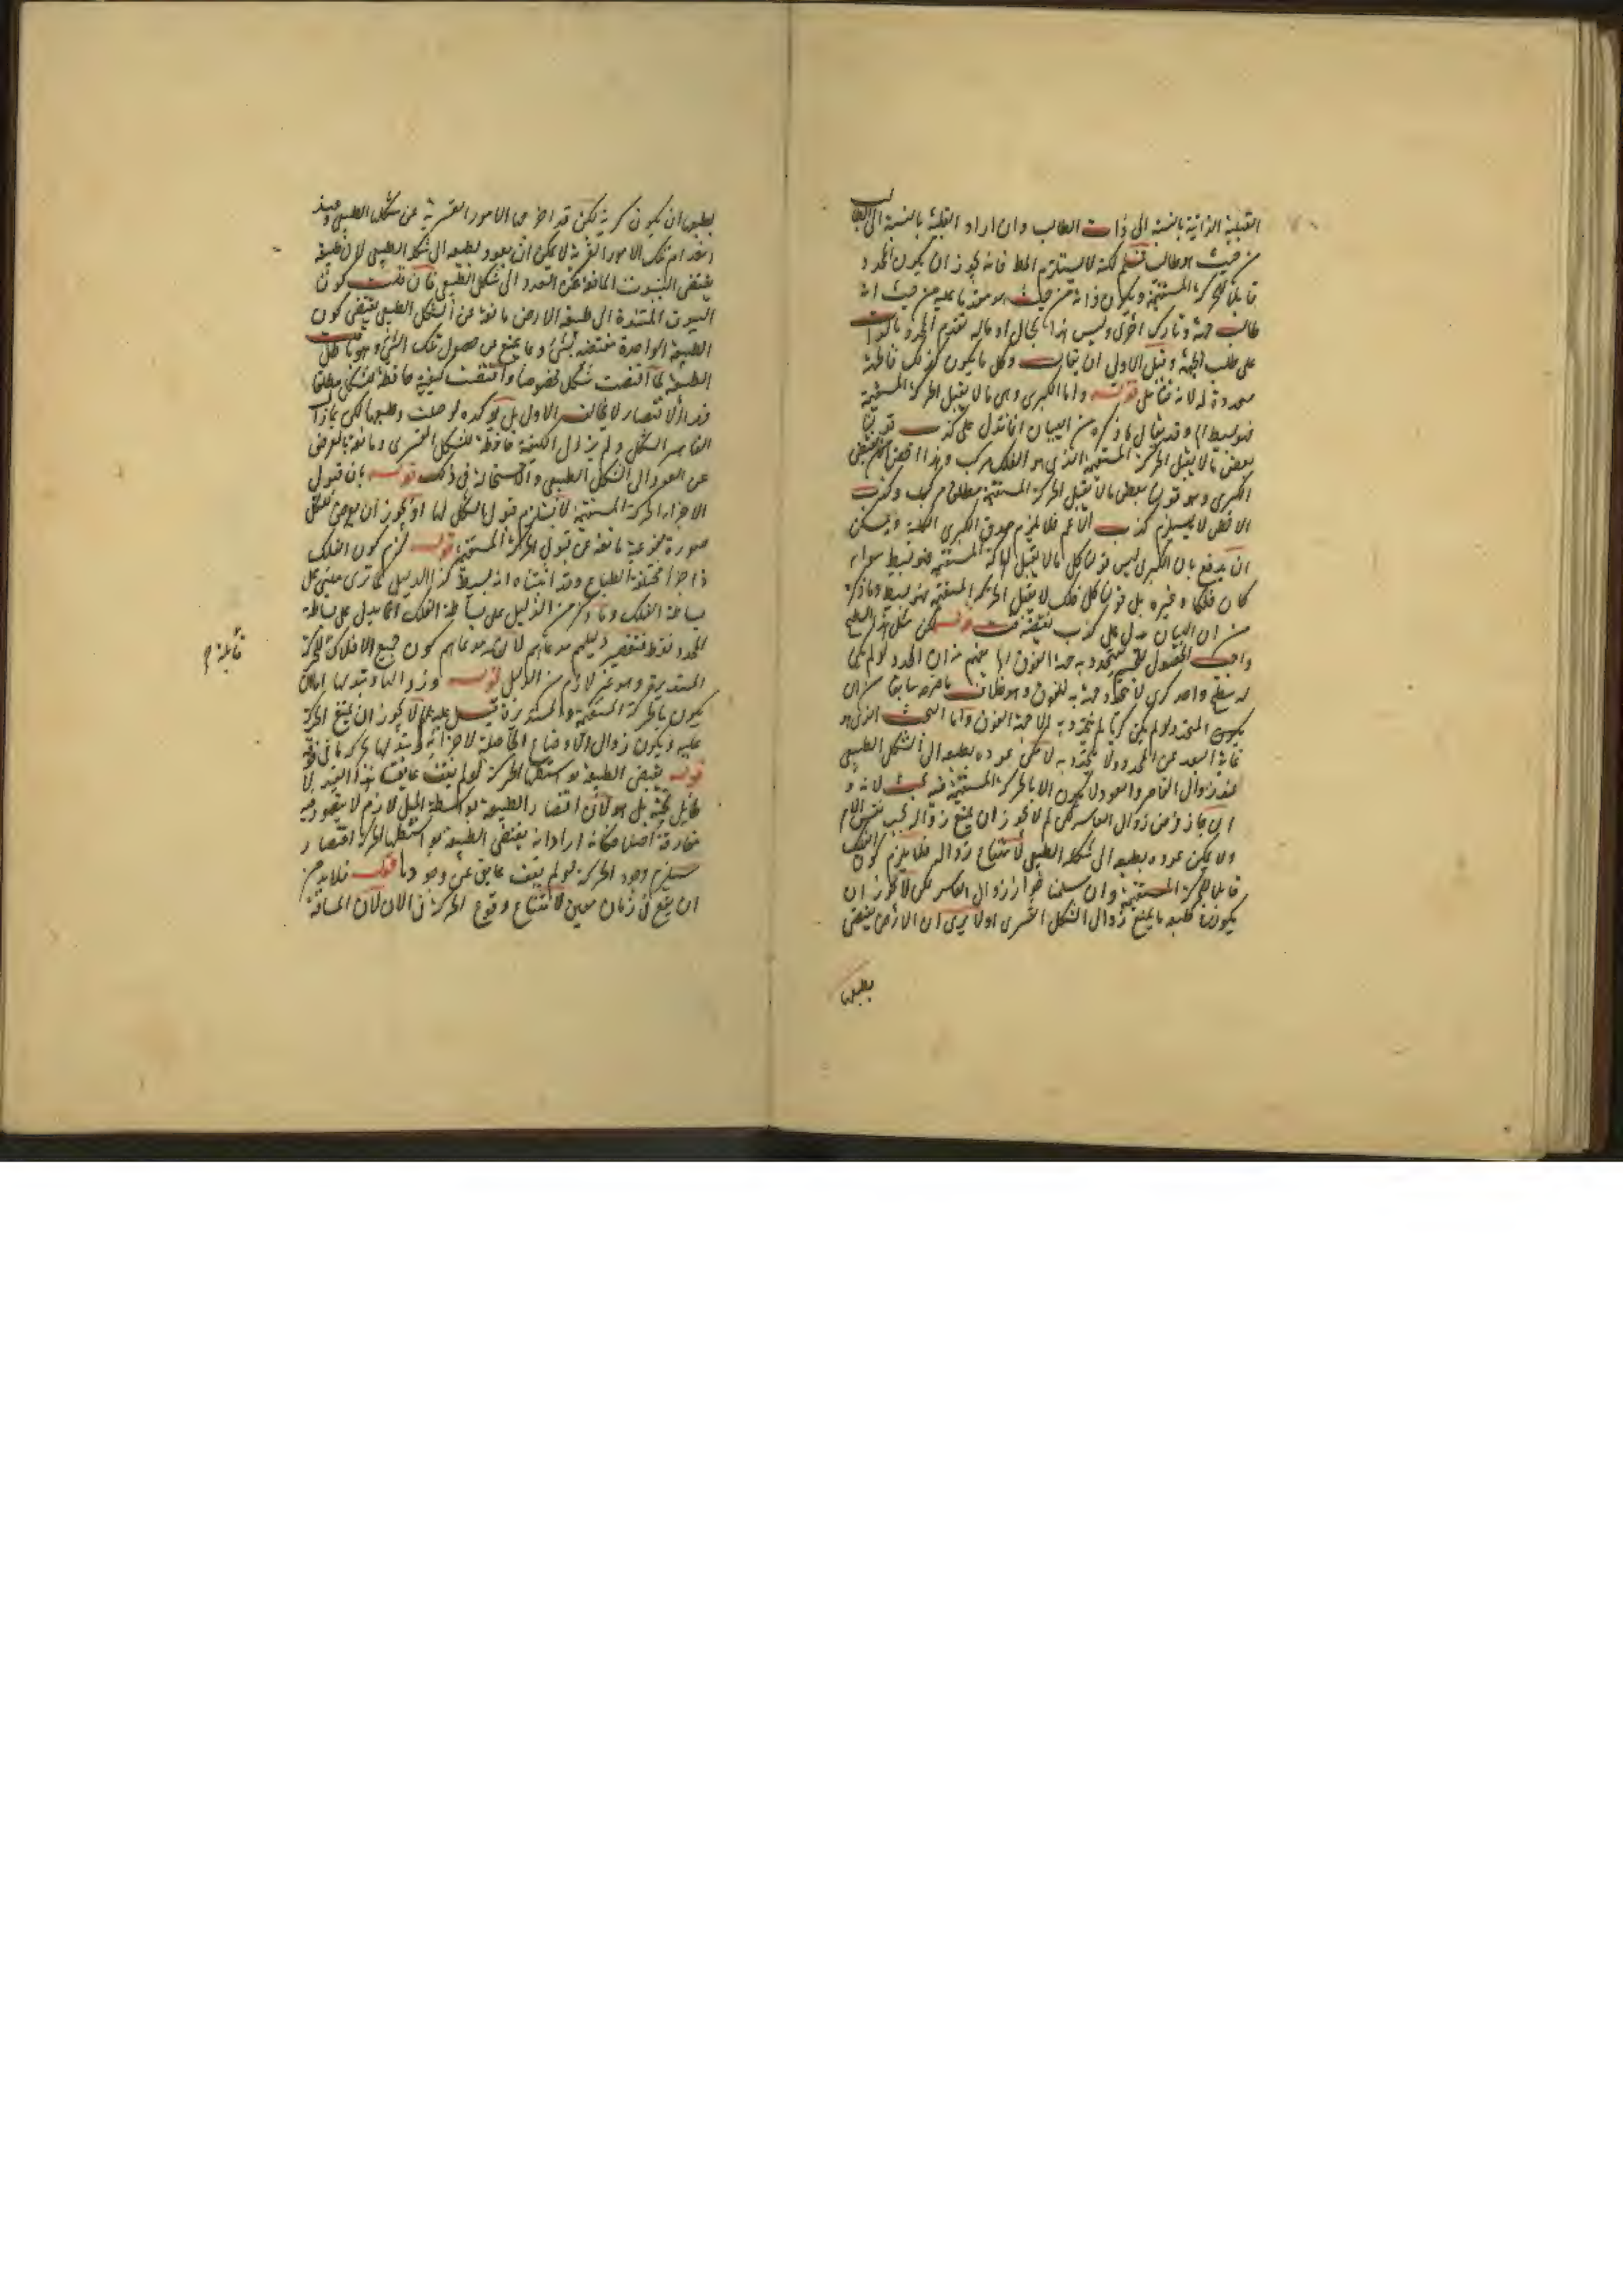 القبلية الذاتية بالنسبة الى ذات الطالب وان اراد القبلية بالنسبة الى الطالب
من حيث هو طالب فمسلم لكنه لا يستلزم المط فانه يجوز ان يكون المحدد
قابلا للحركة المستقيمة ويكون ذاته من حيث هو متقدما عليه من حيث انه
طالب جهة وتارك اخرى وليس هذا بمحال او ماله تقدم المحدد بالذات
على طلب الجهة وقبل الاولى ان يقال وكل ما يكون كذلك فالجهة
محددة له لانه فتامل قوله واما الكبرى وهى ما لا يقبل الحركة المستقيمة
فهو بسيط وقد يقال ما ذكره من البيان انما يدل على كذب قولنا
بعض ما لا يقبل الحركة المستقيمة الذى هو الفلك مركب وهذا اخص من نقيض
الكبرى وهو قولنا بعض ما لا يقبل الحركة المستقيمة مطلقا مركب وكذب
الاخص لا يستلزم كذب الاعم فلا يلزم صدق الكبرى الكلية ويمكن
ان يدفع بان الكبرى ليس قولنا كل ما لا يقبل الحركة المستقيمة فهو بسيط سواء
كان فلكا او غيره بل قولنا كل فلك لا يقبل الحركة المستقيمة فهو بسيط وما ذكره
من ان البيان يدل على كذب نقيضه قوله لكن مثل هذا السطح
واجب الحصول للجسم يتحدد به جهة الفوق يفهم منه ان المحدد لو لم يكن
له سطح واحد كرى لا يتحدد جهة به الفوق وهو خلاف ما صرح سابقا من ان
يكون المحدد لو لم يكن كريا لم يتحدد به الا جهة الفوق واما التحت الذى هو
غاية البعد عن المحدد ولا يتحدد به لا يمكن عوده بطبعه الى الشكل الطبيعى
عند زوال القاسر والعود لا يكون الا بالحركة المستقيمة فيه بحث لانه
ان جاز فرض زوال القاسر لكن لم لا يجوز ان يمتنع زواله بحسب نفس الامر
ولا يمكن عوده بطبعه الى شكله الطبيعى لامتناع زواله فلا يلزم كون الفلك
قابلا للحركة المستقيمة وان سلمنا جواز زوال القاسر لكن لا يجوز ان
يكون طبعه ما يمنع زوال الشكل القسرى اولا يرى ان الارض يقتضى
بطبعها
بطبعها ان يكون كرية لكن قد اخرجها الامور القسرية عن شكلها الطبيعى وعند
انعدام تلك الامور القسرية لا يمكن ان يعود بطبعه الى شكله الطبيعى لان طبيعته
يقتضى اليبوت المانعة عن العود الى شكل الطبيعى فان قلت كون
اليبوت المستندة الى طبيعة الارض مانعة عن الشكل الطبيعى يقتضى كون
الطبيعة الواحدة مقتضية لشئ وما يمنع عن حصول ذلك الشئ وهو باطل قلت
الطبيعة لما اقتضت شكلا مخصوصا واقتضت كيفية حافظة للشكل مطلقا
فهذا الاقتضاء لا يخالف الاول بل يؤكده لو خليت وطبعها لكن لما زال
القاسر الشكل ولم يزل الكيفية حافظة للشكل القسرى ومانعة بالعرض
عن العود الى الشكل الطبيعى ولا استحالة فى ذلك قوله بان قبول
الاجزاء الحركة المستقيمة لا يستلزم قبول الشكل لها اذ يجوز ان يوجد للكل
صورة نوعية مانعة عن قبول الحركة المستقيمة قوله لزم كون الفلك
ذا اجزاء مختلفة الطباع وقد اثبتناه انه بسيط هذا الدليل كما ترى مبنى على
بساطة الفلك وما ذكر من الدليل على بساطة الفلك انما يدل على بساطة
المحدد فقط فيقصر دليلهم مدعاهم لان مدعاهم كون جميع الافلاك للحركة
المستديرة وهو غير لازم من الدليل قوله وزوالها وتبدلها اما ان
يكون بالحركة المستقيمة والمستديرة قيل عليه لم لا يجوز ان يمتنع الحركة
عليه ويكون زوال الاوضاع الحاصلة لاجزائه وتبدلها بحركة ما فى فوقه
قوله يقتضى الطبيعة بواسطتها الحركة لو لم يقف عايق هذا القيد لا
طائل تحته بل هو لان اقتضاء الطبيعة بواسطة الميل لازم لا يتصور فيه
مفارقة اصلا فكانه ارادانه يقتضى الطبيعة بواسطتها الحركة اقتضاء
يستلزم وجود الحركة لو لم يقف عايق عن وجودها قوله فلا بد من
ان يقع فى زمان معين لامتناع وقوع الحركة فى الان لان المسافة
قابلة